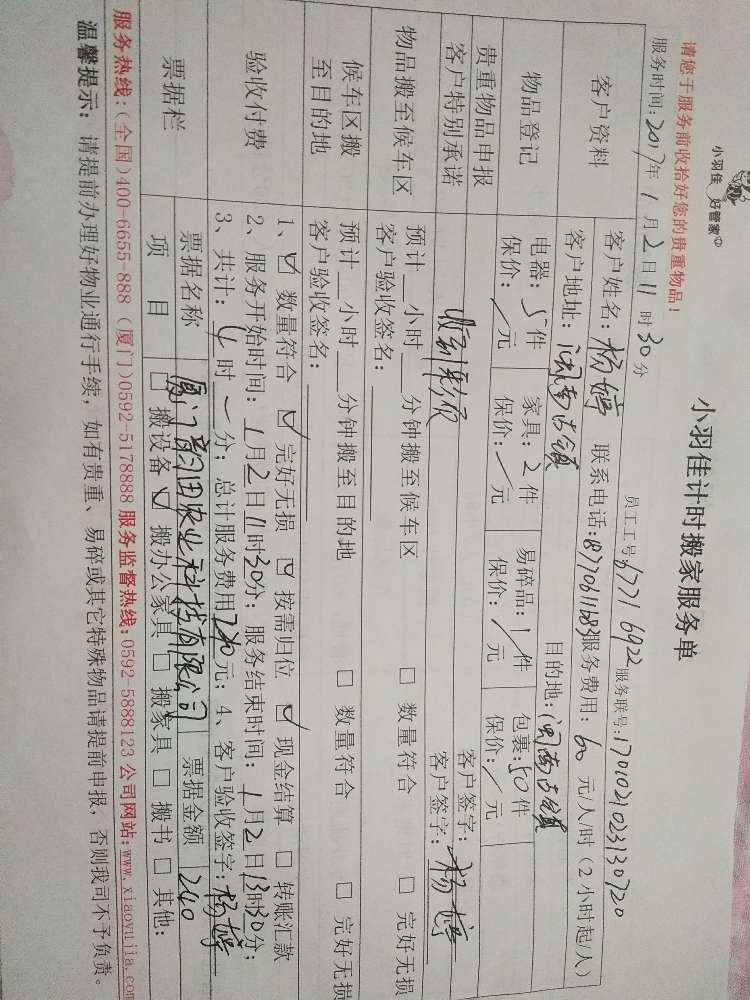 小羽佳 好管家
小羽佳计时搬家服务单
请您于服务前收拾好您的贵重物品！
员工工号:6922 服务联号:1701021023130720
服务时间:2017年1月2日11时30分
客户资料
客户姓名:杨婷 联系电话:18770611683 服务费用:60元/人/时(2小时起/人)
客户地址:闽南古镇 目的地:闽南古镇
物品登记
电器:5件 家具:2件 易碎品:1件 包裹:50件
保价:/元 保价:/元 保价:/元 保价:/元
贵重物品申报 客户签字:
客户特别承诺 客户签字:杨婷
物品搬至候车区
预计__小时__分钟搬至候车区 □ 数量符合 □ 完好无损
客户验收签名:
候车区搬至目的地
预计__小时__分钟搬至目的地 □ 数量符合 □ 完好无损
客户验收签名:
验收付费
1、☑ 数量符合 ☑ 完好无损 ☑ 按需归位 ☑ 现金结算 □ 转账汇款
2、服务开始时间:1月2日11时30分; 服务结束时间:1月2日13时30分;
3、共计:4时/分; 总计服务费用240元; 4、客户验收签字:杨婷
票据栏
票据名称 厦门 农业科技有限公司 票据金额 240
项 目 □ 搬设备 ☑ 搬办公家具 □ 搬家具 □ 搬书 □ 其他:
服务热线:(全国)400-6655-888 (厦门)0592-5178888 服务监督热线:0592-5888123 公司网站:www.xiaoyujia.com
温馨提示:请提前办理好物业通行手续，如有贵重、易碎或其它特殊物品请提前申报，否则我司不予负责。